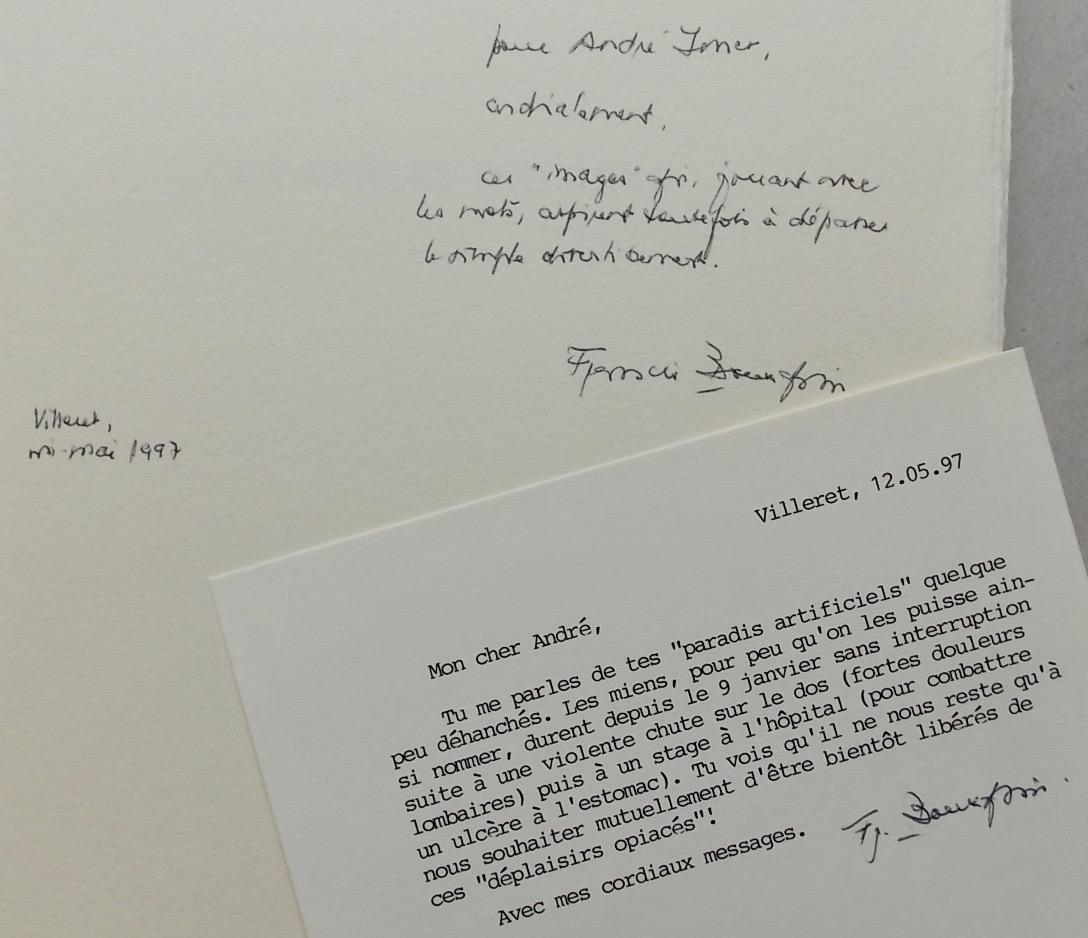 pour André Imer,
cordialement,
ces "images" qui, jouant avec
les mots, aspirent toutefois à dépasser
le simple divertissement.
Francis Bonnefoin
Villeret,
mi-mai 1997
Villeret, 12.05.97
Mon cher André,
Tu me parles de tes "paradis artificiels" quelque
peu déhanchés. Les miens, pour peu qu'on les puisse ain-
si nommer, durent depuis le 9 janvier sans interruption
suite à une violente chute sur le dos (fortes douleurs
lombaires) puis à un stage à l'hôpital (pour combattre
un ulcère à l'estomac). Tu vois qu'il ne nous reste qu'à
nous souhaiter mutuellement d'être bientôt libérés de
ces "déplaisirs opiacés"!
Avec mes cordiaux messages.
Fr.